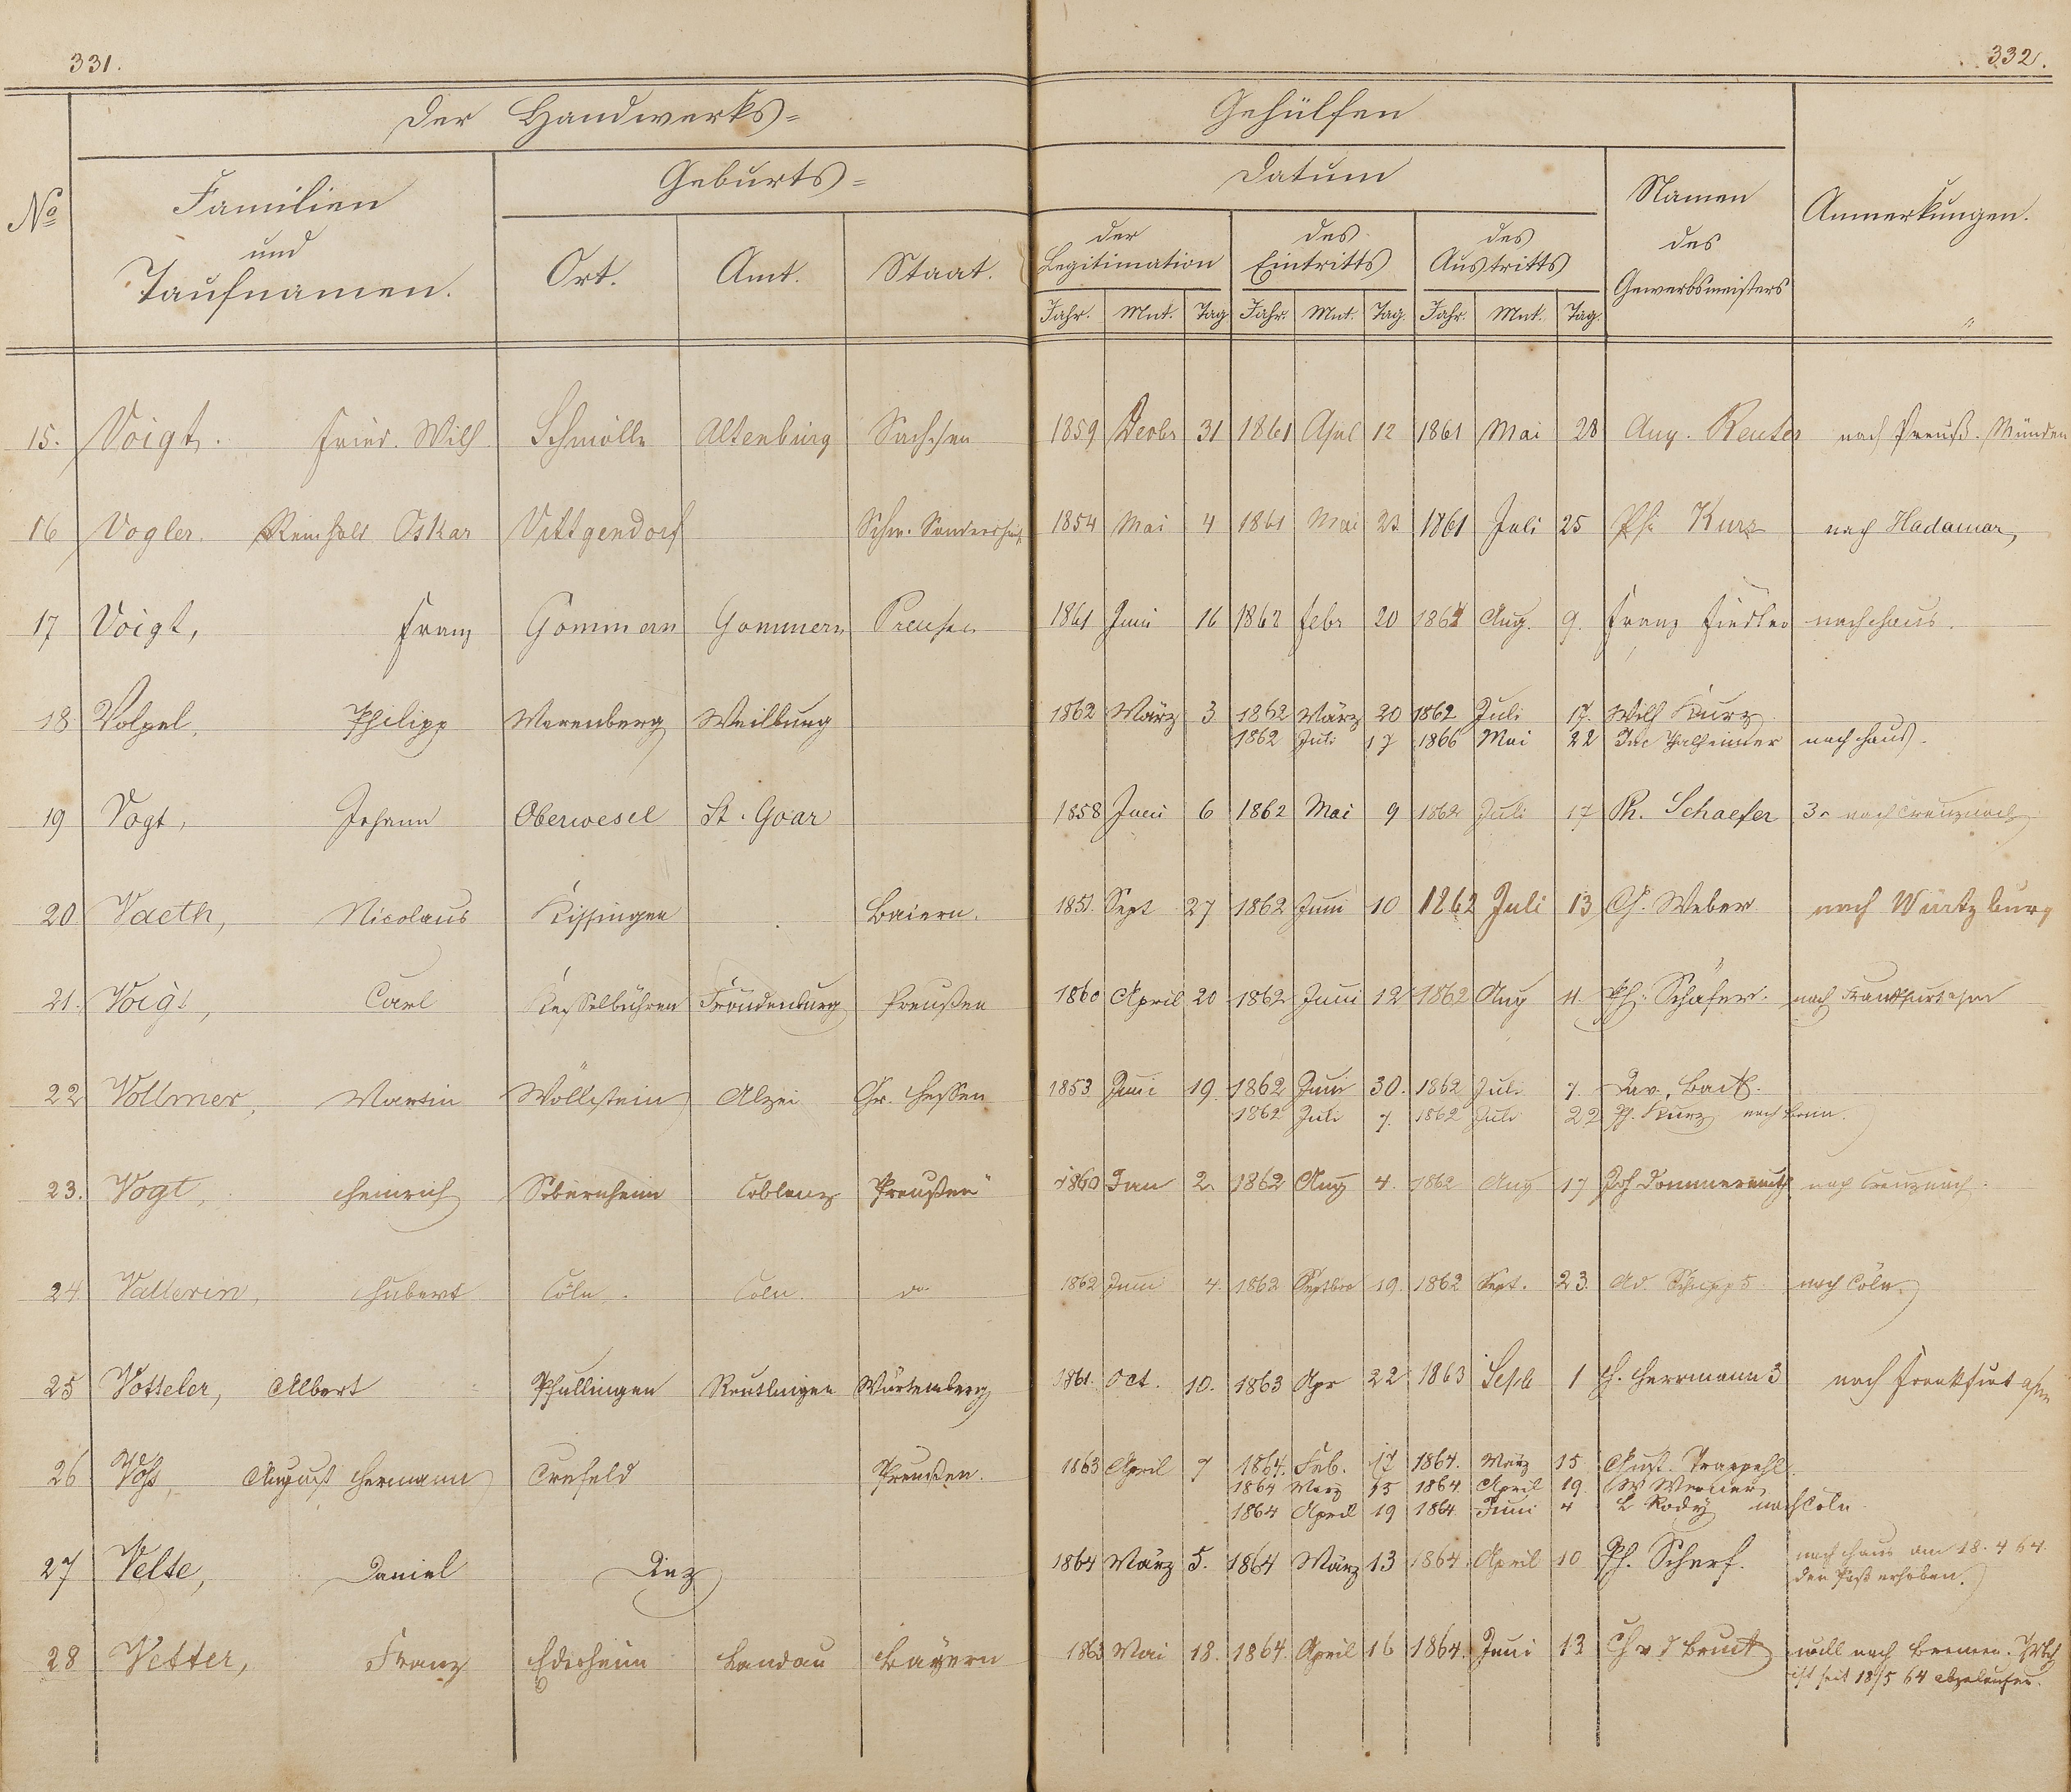 331.
332.
Der Handwerks=
Gehülfen
No
Familien
und
Taufnamen.
Geburts=
Ort.
Amt.
Staat.
Datum
der
Legitimation
des
Eintritts
des
Austritts
Namen
des
Gewerbsmeisters
Anmerkungen.
Jahr. Mnt. Tag Jahr. Mnt. Tag. Jahr. Mnt. Tag.
15. Voigt. Fried. Wilh Schmölln Altenburg Sachsen 1859 Decbr 31 1861 Apul 12 1861 Mai 28 Aug. Reuter nach Preuß. Münden
16 Vogler. Reinhold Oskar Vittgendorf Schw. 1854 Mai 4 1861 Mai 23 1861 Juli 25 Ph: Kurz nach Hadamar,
17 Voigt, Franz Gommern Gommern Preusen 1861 Juni 16 1862 Febr 20 1862 Aug. 9. Franz Fiedler nachhaus.
18 Volpel, Philipp Merenberg Weilburg 1862 März 3 1862 März 20 1862 Juli 17. Wilh Kurz
1862 Juli 17 1866 Mai 22 Jac Thalheimer nach haus.
19 Vogt, Johann Oberwesel St. Goar 1858 Juni 6 1862 Mai 9 1862 Juli 17 Ph. Schaefer 3r nach Creuznach
20 Vaeth, Nicolaus Kissingen Baiern. 1851. Sept 27 1862 Juni 10 1862 Juli 13 Ch. Weber nach Würtzburg
21. Voigt, Carl Kesselbühren Fröndenburg Preußen 1860 April 20 1862 Juni 12 1862 Aug 11. Ph: Schäfer. nach Frankfurt a/m
22 Vollmer, Martin Wöllstein Alzei Gr. Hessen 1853 Juni 19. 1862 Juni 30. 1862 Juli 7. Dav.
1862 Juli 7. 1862 Juli 22 Ph. Kurz nach Bonn.
23. Vogt, Heinrich Sobernheim Coblenz Preußen 1860 Jan 2. 1862 Aug 4. 1862 Aug 17 Joh nach Creuznach.
24 Vallerin, Hubert Cöln. Cöln. do. 1862 Juni 4. 1862 Septbr 19. 1862 Sept. 23. Ad. nach Cöln.
25 Votteler, Albert Pfullingen Reutlingen Würtemberg 1861. Oct. 10. 1863 Apr 22 1863 Sept 1 H. Herrmann 3 nach Frankfurt a/m
26 Voß, August Hermann Crefeld Preußen. 1863 April 7 1864. Feb. 17 1864. März 15 Gust. Trappehl.
1864 März 15 1864. April 19. W Werner
1864 April 19 1864 Juni 4 L Rody nach Cöln.
27 Velte, Daniel Diez 1864 März 5. 1864 März 13 1864. April 10 Ph. Scherf. nach Haus am 18. 4 64.
den Paß erhoben.
28 Vetter, Franz Edesheim Landau Bayern 1863 Mai 18. 1864. April 16 1864. Juni 13 will nach Bremen.
ist seit 18/5 64 abgelaufen.